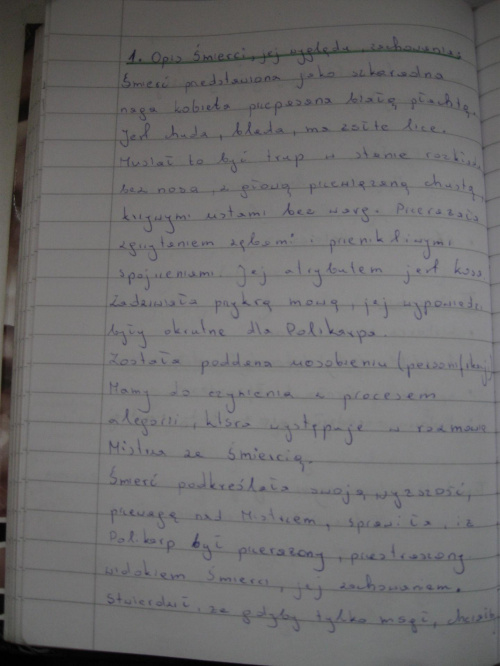 1. Opis Śmierci, jej wyglądu, zachowania:
Śmierć przedstawiona jako szkaradna
naga kobieta przepasana białą płachtą.
Jest chuda, blada, ma żółte lice.
Musiał to być trup w stanie rozkładu
bez nosa, z głową przewiązaną chustą,
krzywymi ustami bez warg. Przerażała
zgrzytaniem zębami i przenikliwymi
spojrzeniami. Jej atrybutem jest kosa.
Zadziwiała przykrą mową, jej wypowiedzi
były okrutne dla Polikarpa.
Została poddana uosobieniu (personifikacji)
Mamy do czynienia z procesem
alegorii, która występuje w rozmowie
Mistrza ze Śmiercią.
Śmierć podkreślała swoją wyższość,
przewagę nad Mistrzem, sprawiła, iż
Polikarp był przerażony, przestraszony
widokiem Śmierci, jej zachowaniem.
Stwierdził, że gdyby tylko mógł,